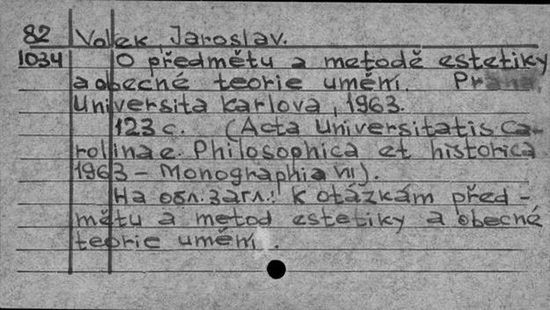 82 Volek, Jaroslav.
1034 O předmětu a metodě estetiky
a obecné teorie umění. Praha,
Universita Karlova, 1963.
123 c. (Acta Universitatis Ca-
rolinae. Philosophica et historica
1963 - Monographia VI).
На обл. загл.: K otázkám před-
mětu a metod estetiky a obecné
teorie umění.